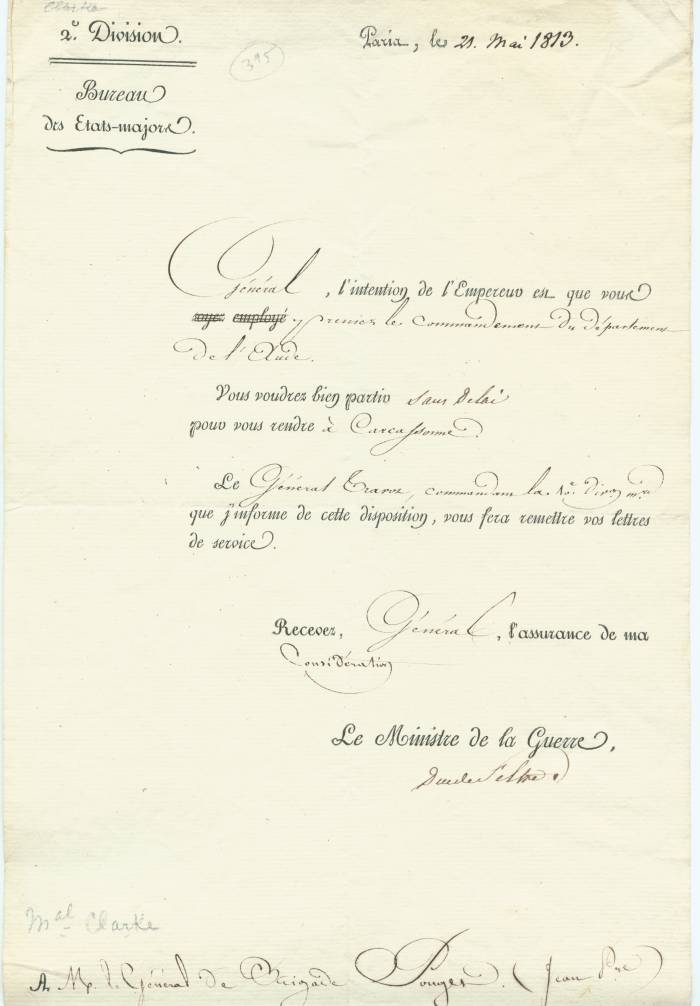 Clarke
2e Division.
Paris, le 21. Mai 1813.
395
Bureau
des Etats-majors.
Général, l'intention de l'Empereur est que vous
soyez employé y preniez le commandement du département
de l'Aude.
Vous voudrez bien partir sans délai
pour vous rendre à Carcassonne.
Le Général Travot, commandant la 10e divon mre
que j'informe de cette disposition, vous fera remettre vos lettres
de service.
Recevez, Général, l'assurance de ma
Considération
Le Ministre de la Guerre,
Duc de Feltre
Mal Clarke
A M. le Général de Brigade Pouget. (Jean Pre)